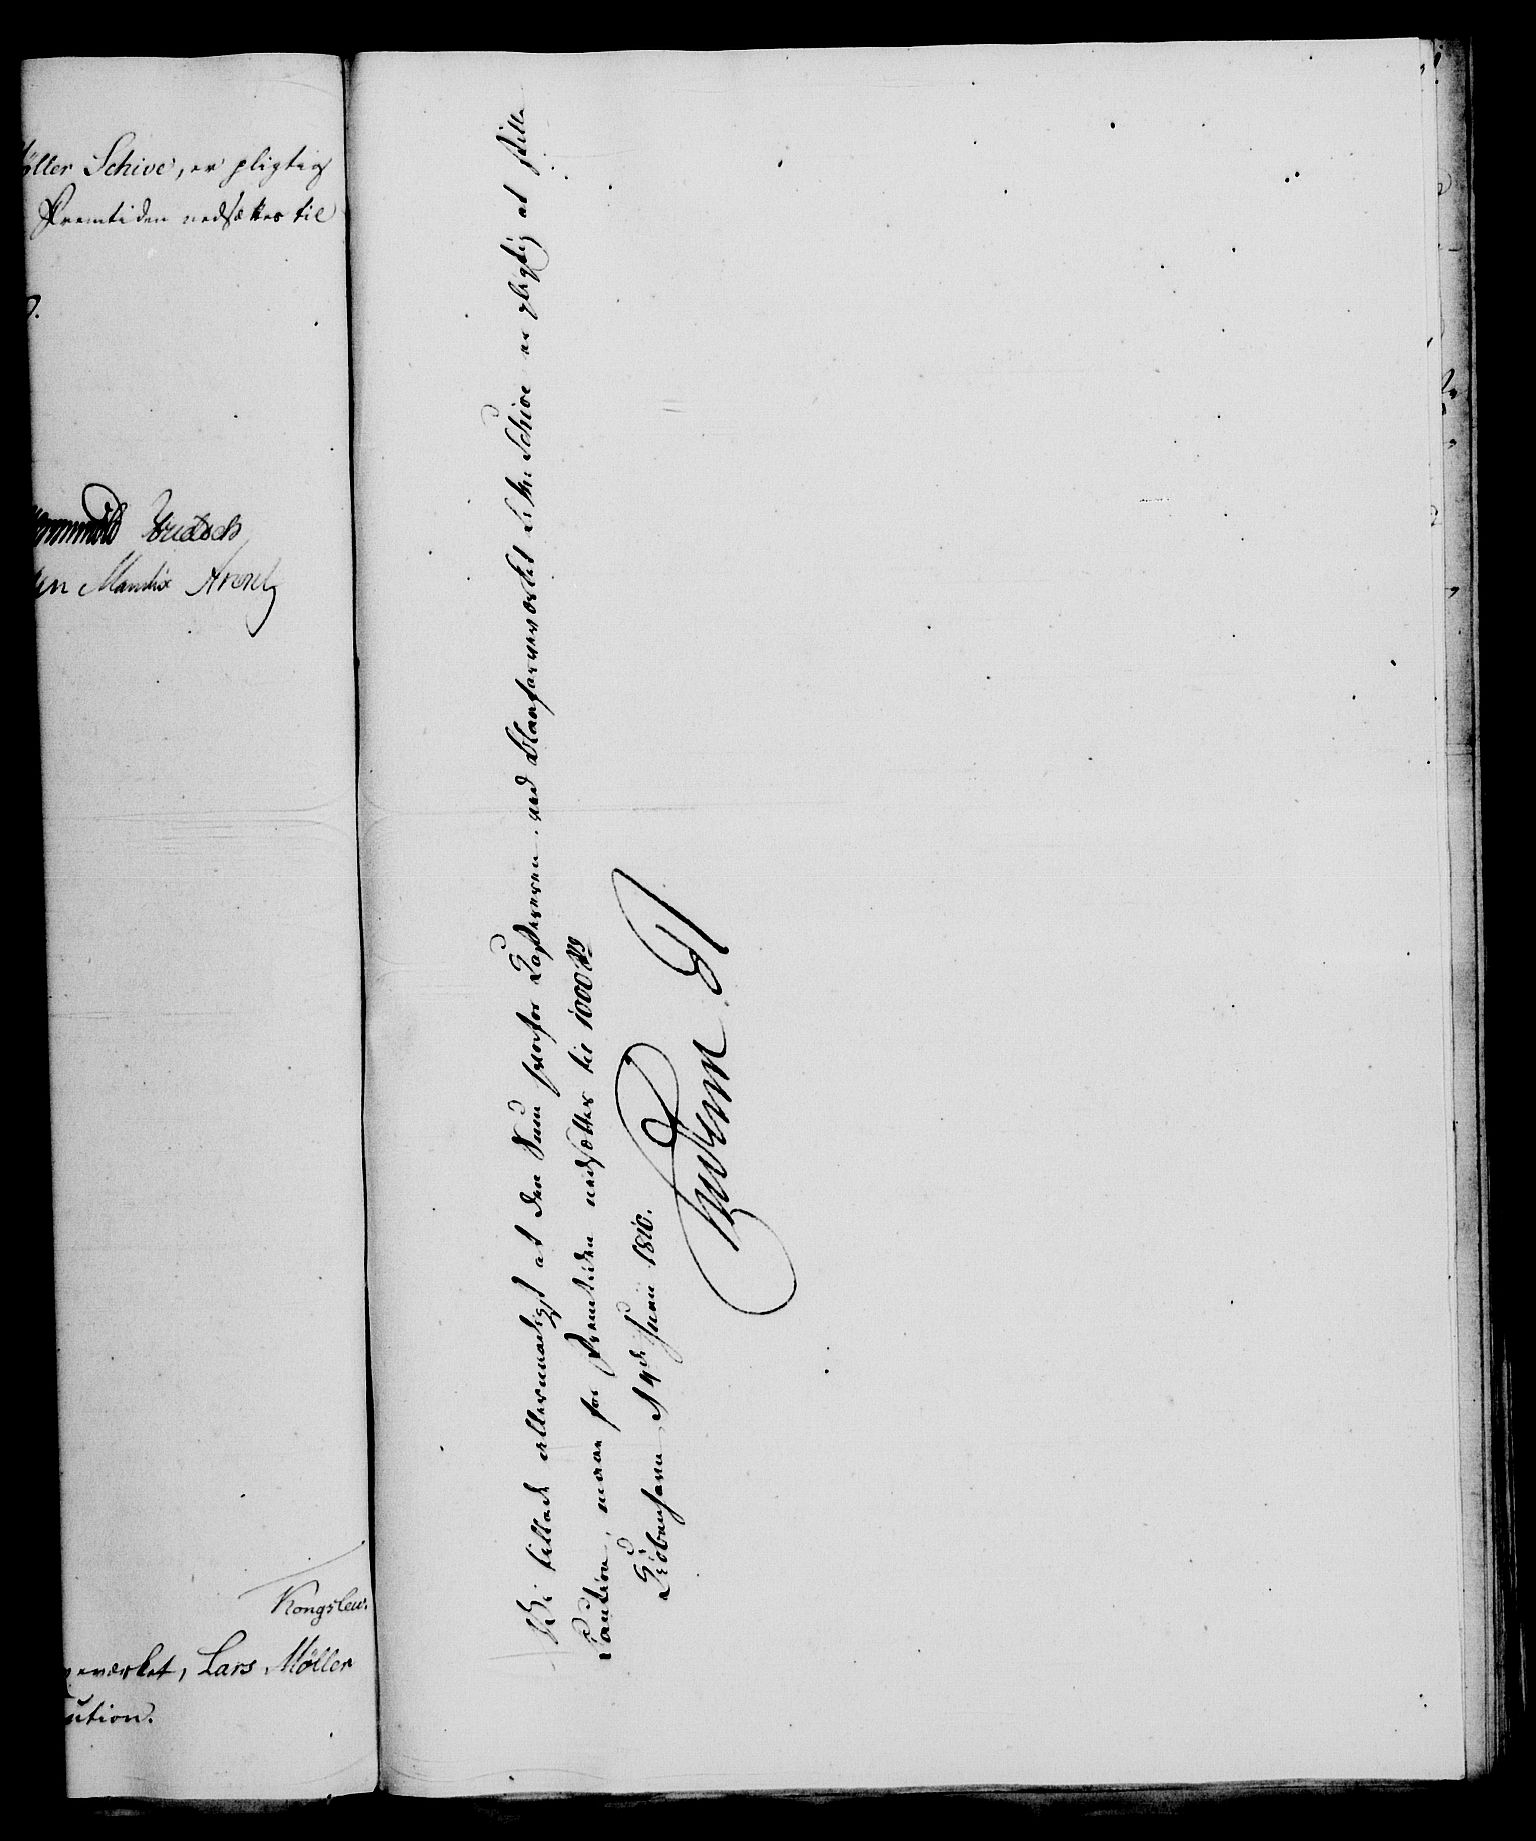 öller Schive, er pligtig
Fremtiden nedsættes til
Mandix Arentz
Kongslew.
eværket, Lars Möller
ution.
Vi tillade allernaadigst at den Sum hvorfor Casereren ved Blaafarveværket L. M. Schive er pligtig at stille
Caution, maae for Fremtiden nedsættes til 1000 Rd
Kiöbenhavn d 14de Junii 1810.
Frederik R